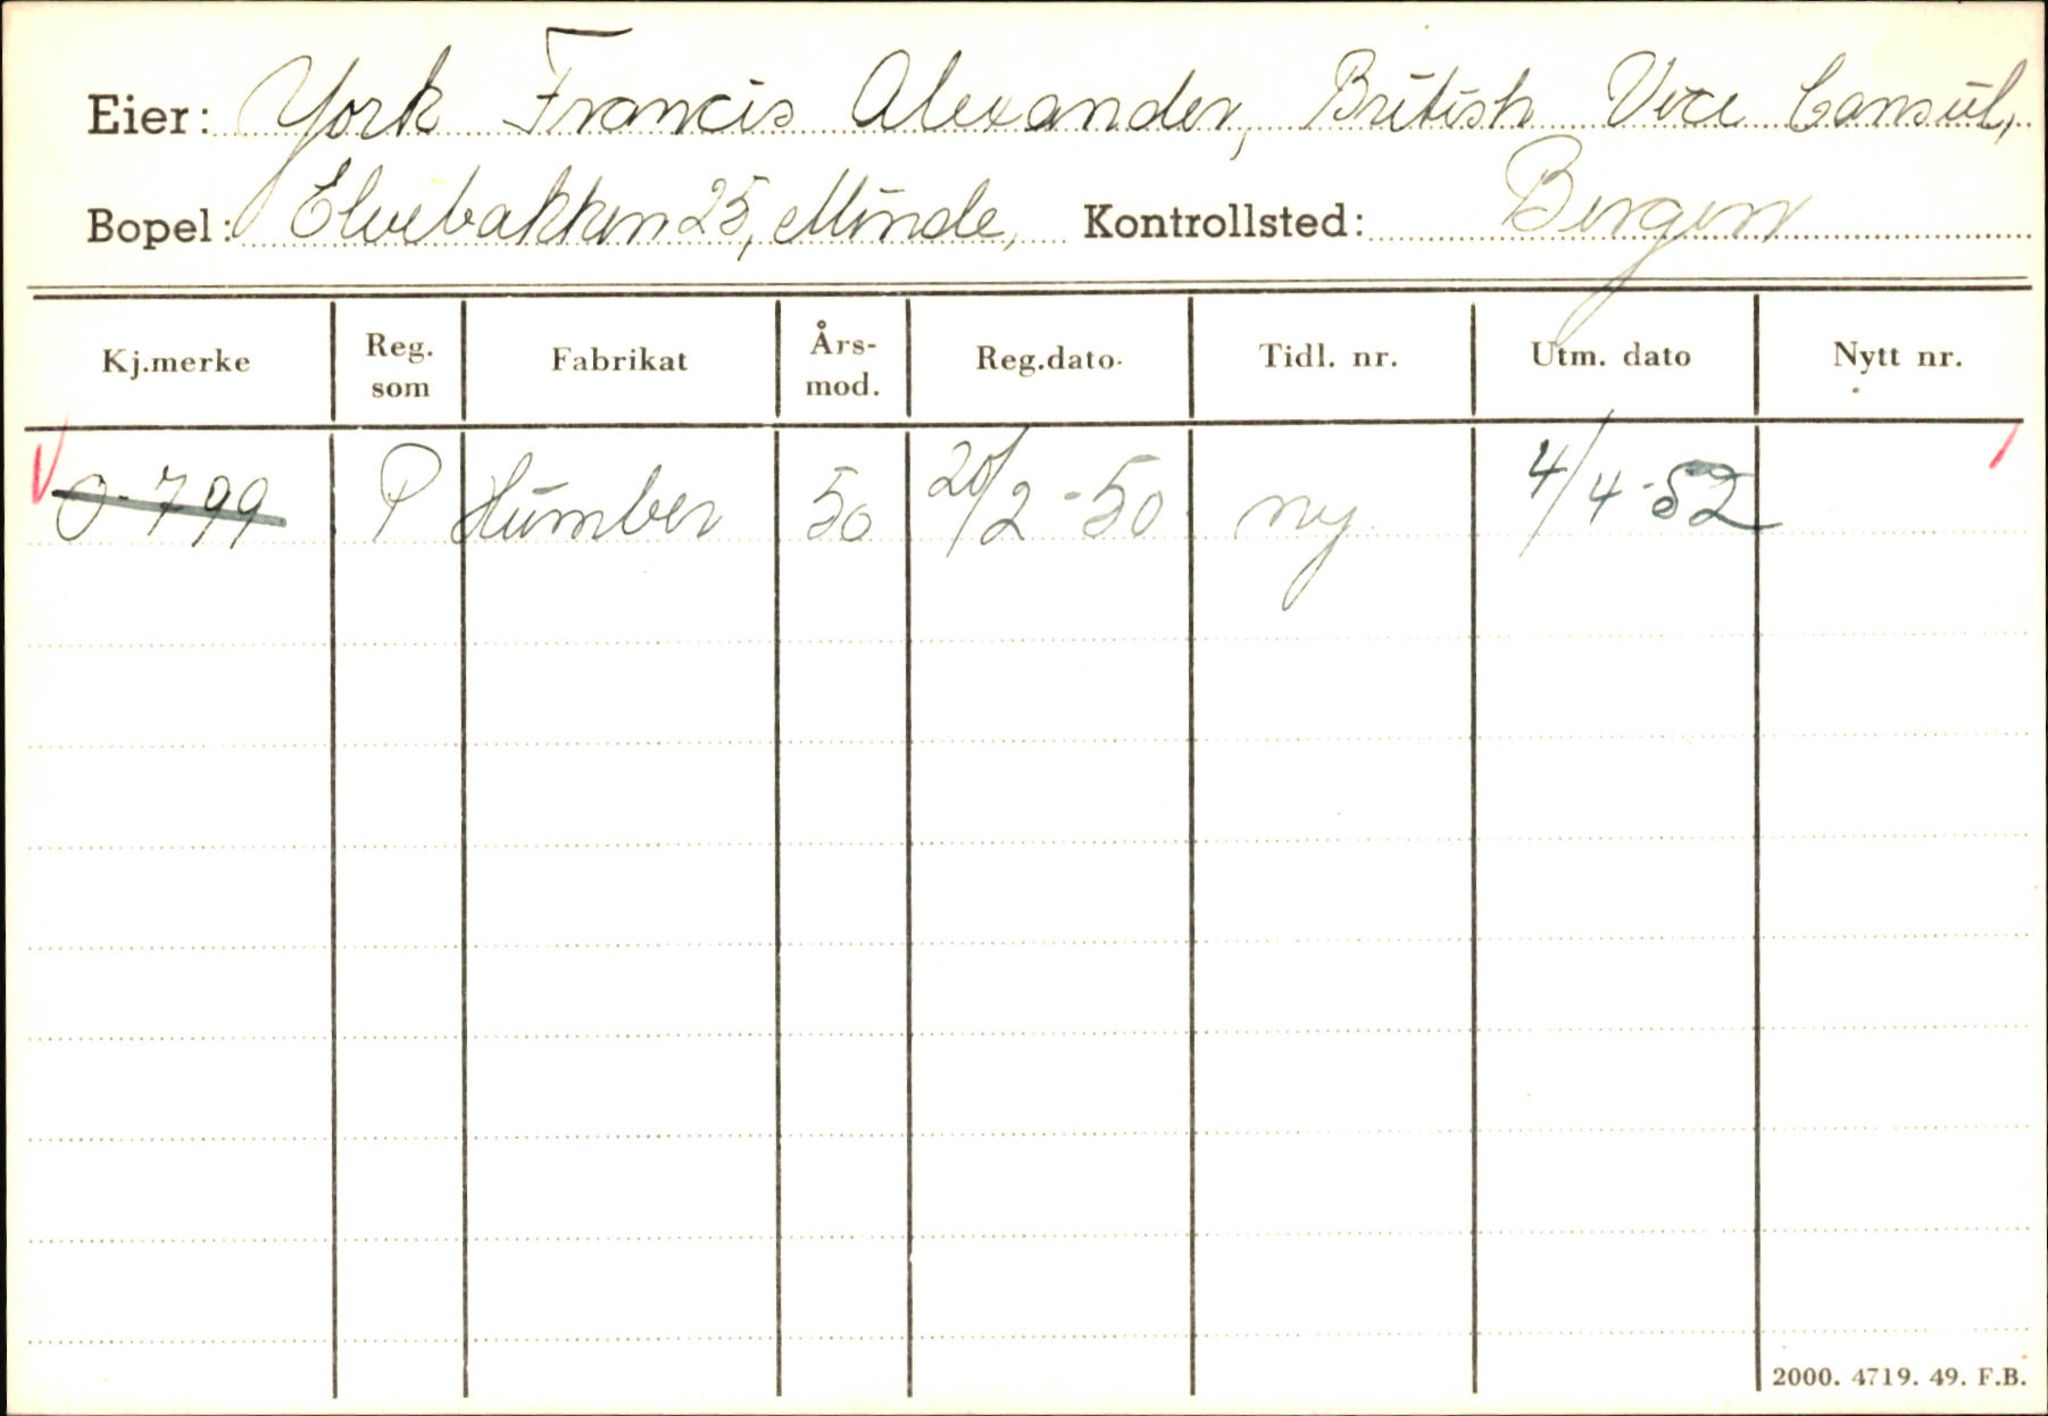 Eier: York Francis Alexander, British Vice Consul,
Bopel: Elvebakken 25, Minde, Kontrollsted: Bergen
Kj.merke Reg. som Fabrikat Års-mod. Reg.dato Tidl. nr. Utm. dato Nytt nr.
O-799 P Humber 50 20/2-50 ny 4/4-52
2000. 4719. 49. F.B.